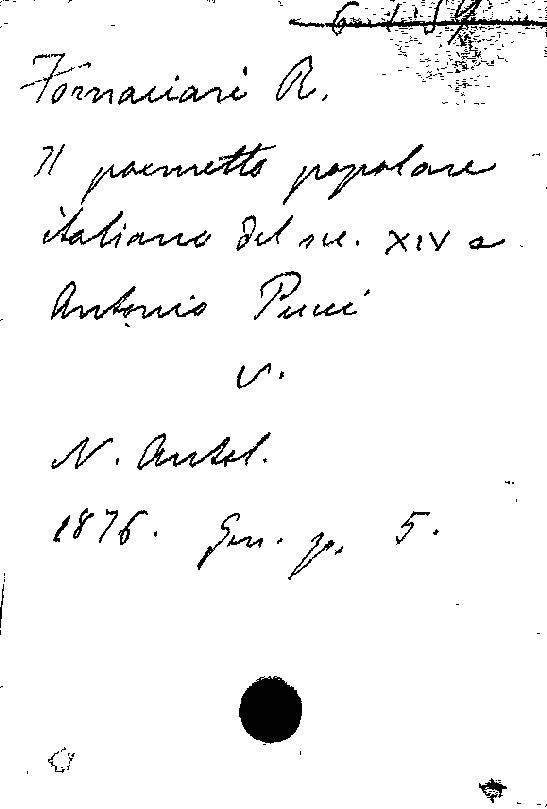 Fornaciari R.
Il poemetto popolare
italiano del sec. XIV e
Antonio Pucci
v.
N. Antol.
1876. Gen. p. 5.